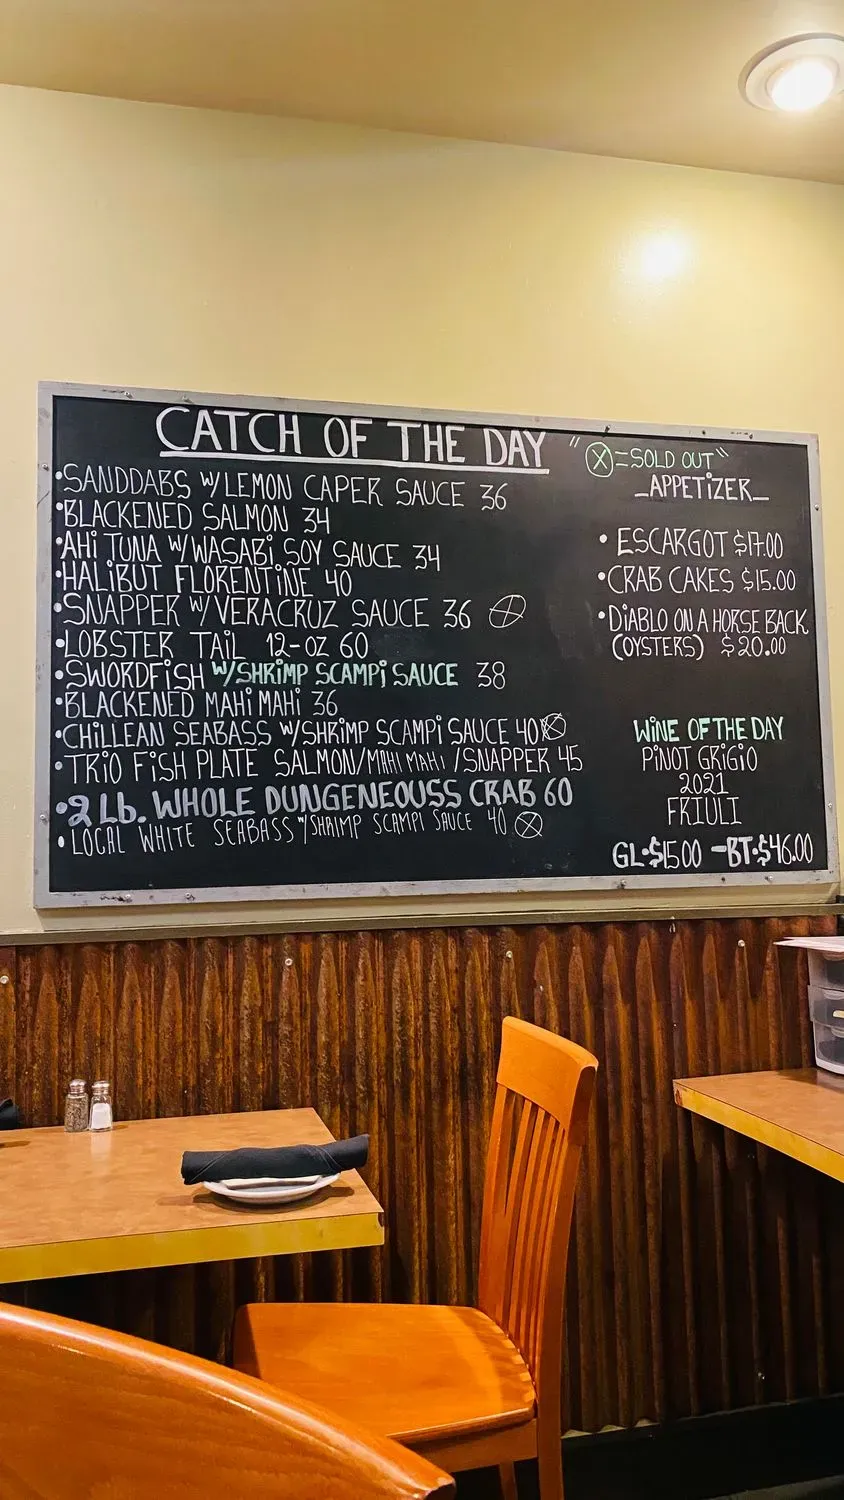 CATCH OF THE DAY
• SANDDABS W/LEMON CAPER SAUCE 36
• BLACKENED SALMON 34
• AHi TUNA W/WASABi SOY SAUCE 34
• HALIBUT FLORENTINE 40
• SNAPPER W/VERACRUZ SAUCE 36 ⓧ
• LOBSTER TAIL 12-OZ 60
• SWORDFiSH W/SHRiMP SCAMPi SAUCE 38
• BLACKENED MAHi MAHi 36
• CHiLLEAN SEABASS W/SHRiMP SCAMPi SAUCE 40 ⓧ
• TRiO FiSH PLATE SALMON/MAHI MAHI/SNAPPER 45
• 2 Lb. WHOLE DUNGENEOUSS CRAB 60
• LOCAL WHITE SEABASS W/SHRIMP SCAMPI SAUCE 40 ⓧ
"ⓧ=SOLD OUT"
_APPETiZER_
• ESCARGOT $17.00
• CRAB CAKES $15.00
• DiABLO ON A HORSE BACK
(OYSTERS) $20.00
WiNE OF THE DAY
PiNOT GRiGiO
2021
FRIULI
GL•$15.00 -BT•$46.00